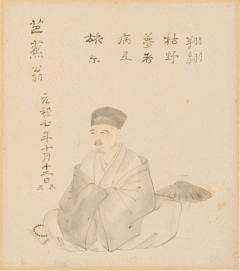 翔翻
枯野
夢者
病天
旅尓
芭蕉翁
元禄七年十月十二日